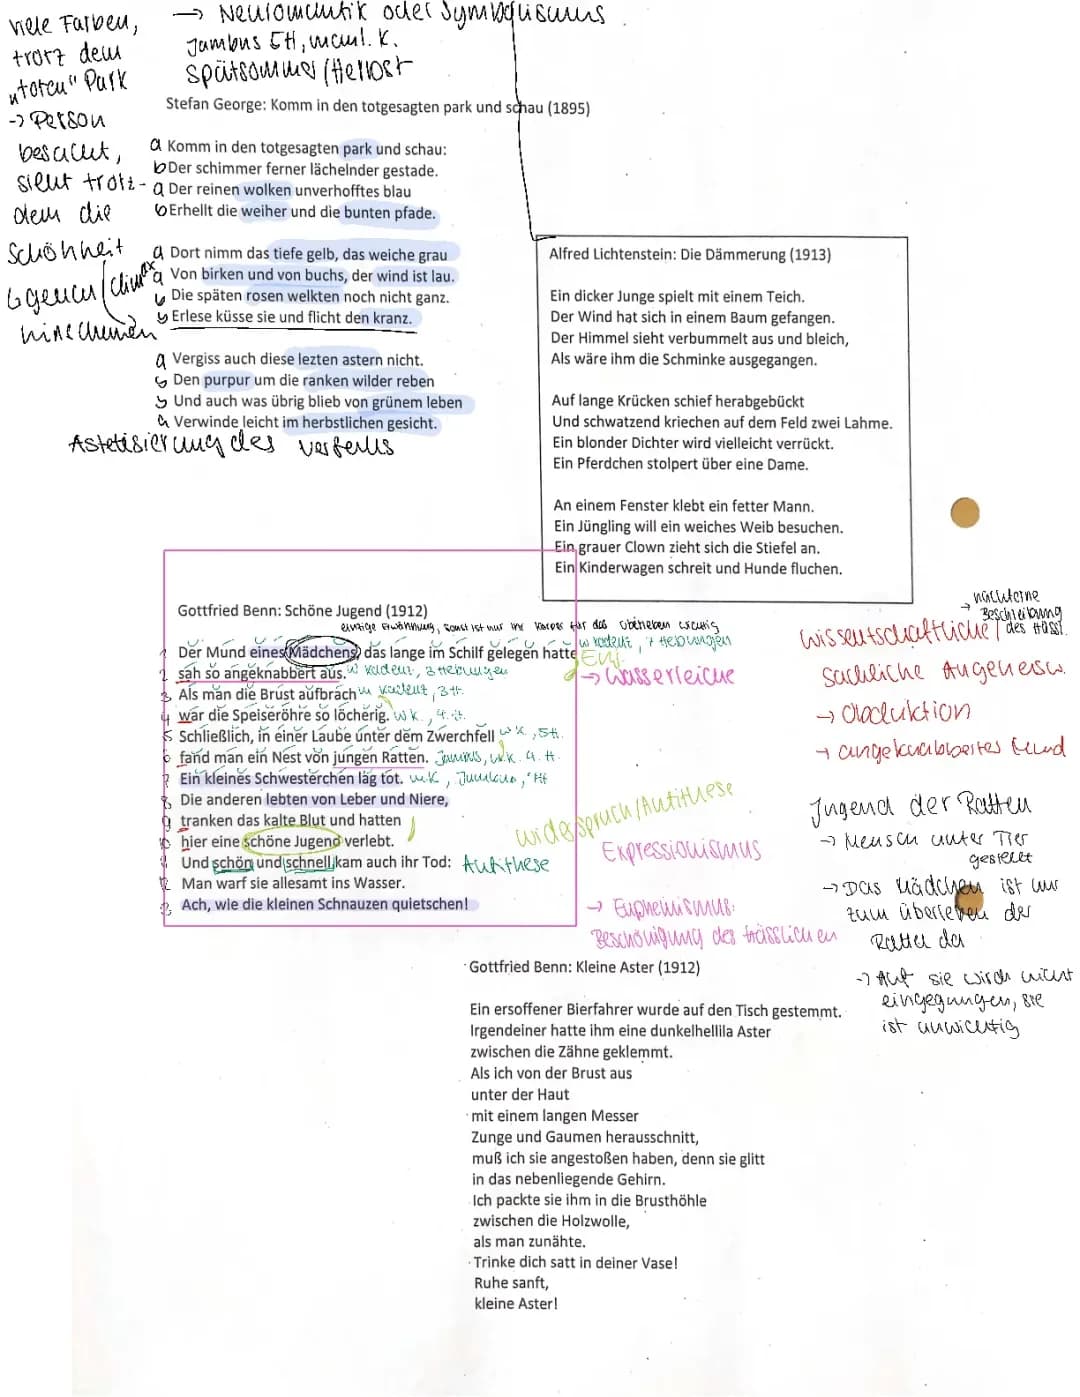 viele Farben,
trotz dem
"toten" Park
-> Person
besucht,
sieht trotz-
dem die
Schönheit
-> Neuromantik oder Symbolismus
Jambus 5H, mänl. K.
Spätsommer/Herbst
Stefan George: Komm in den totgesagten park und schau (1895)
a Komm in den totgesagten park und schau:
b Der schimmer ferner lächelnder gestade.
a Der reinen wolken unverhofftes blau
b Erhellt die weiher und die bunten pfade.
a Dort nimm das tiefe gelb, das weiche grau
a Von birken und von buchs, der wind ist lau.
b Die späten rosen welkten noch nicht ganz.
b Erlese küsse sie und flicht den kranz.
a Vergiss auch diese lezten astern nicht.
b Den purpur um die ranken wilder reben
b Und auch was übrig blieb von grünem leben
a Verwinde leicht im herbstlichen gesicht.
Astetisierung des verfalls
Alfred Lichtenstein: Die Dämmerung (1913)
Ein dicker Junge spielt mit einem Teich.
Der Wind hat sich in einem Baum gefangen.
Der Himmel sieht verbummelt aus und bleich,
Als wäre ihm die Schminke ausgegangen.
Auf lange Krücken schief herabgebückt
Und schwatzend kriechen auf dem Feld zwei Lahme.
Ein blonder Dichter wird vielleicht verrückt.
Ein Pferdchen stolpert über eine Dame.
An einem Fenster klebt ein fetter Mann.
Ein Jüngling will ein weiches Weib besuchen.
Ein grauer Clown zieht sich die Stiefel an.
Ein Kinderwagen schreit und Hunde fluchen.
Gottfried Benn: Schöne Jugend (1912)
einzige Erwähnung, sonst ist nur ihr Körper für das überleben wichtig
1 Der Mund eines Mädchens, das lange im Schilf gelegen hatte w kadenz, 7 Hebungen
2 sah so angeknabbert aus. w kadenz, 3 Hebungen
3 Als man die Brust aufbrach w kadenz, 3 H.
4 war die Speiseröhre so löcherig. w K., 4. H.
5 Schließlich, in einer Laube unter dem Zwerchfell w K, 5H.
6 fand man ein Nest von jungen Ratten. Jambus, w.K. 4. H.
7 Ein kleines Schwesterchen lag tot. w.K, Jambus, 4H
8 Die anderen lebten von Leber und Niere,
9 tranken das kalte Blut und hatten
10 hier eine schöne Jugend verlebt.
11 Und schön und schnell kam auch ihr Tod: Antithese
12 Man warf sie allesamt ins Wasser.
13 Ach, wie die kleinen Schnauzen quietschen!
Enj.
-> Wasserleiche
widerspruch/Antithese
Expressionismus
-> Euphemismus:
Beschönigung des hässlichen
-> nüchterne
Beschreibung
des Hässl.
wissentschaftliche/
sachliche Angehensw.
-> Obduktion
-> angeknabbertes Mund
Jugend der Ratten
-> Mensch unter Tier
gestellt
-> Das Mädchen ist nur
zum überleben der
Ratten da
-> Auf sie wird nicht
eingegangen, sie
ist unwichtig
Gottfried Benn: Kleine Aster (1912)
Ein ersoffener Bierfahrer wurde auf den Tisch gestemmt.
Irgendeiner hatte ihm eine dunkelhellila Aster
zwischen die Zähne geklemmt.
Als ich von der Brust aus
unter der Haut
mit einem langen Messer
Zunge und Gaumen herausschnitt,
muß ich sie angestoßen haben, denn sie glitt
in das nebenliegende Gehirn.
Ich packte sie ihm in die Brusthöhle
zwischen die Holzwolle,
als man zunähte.
Trinke dich satt in deiner Vase!
Ruhe sanft,
kleine Aster!